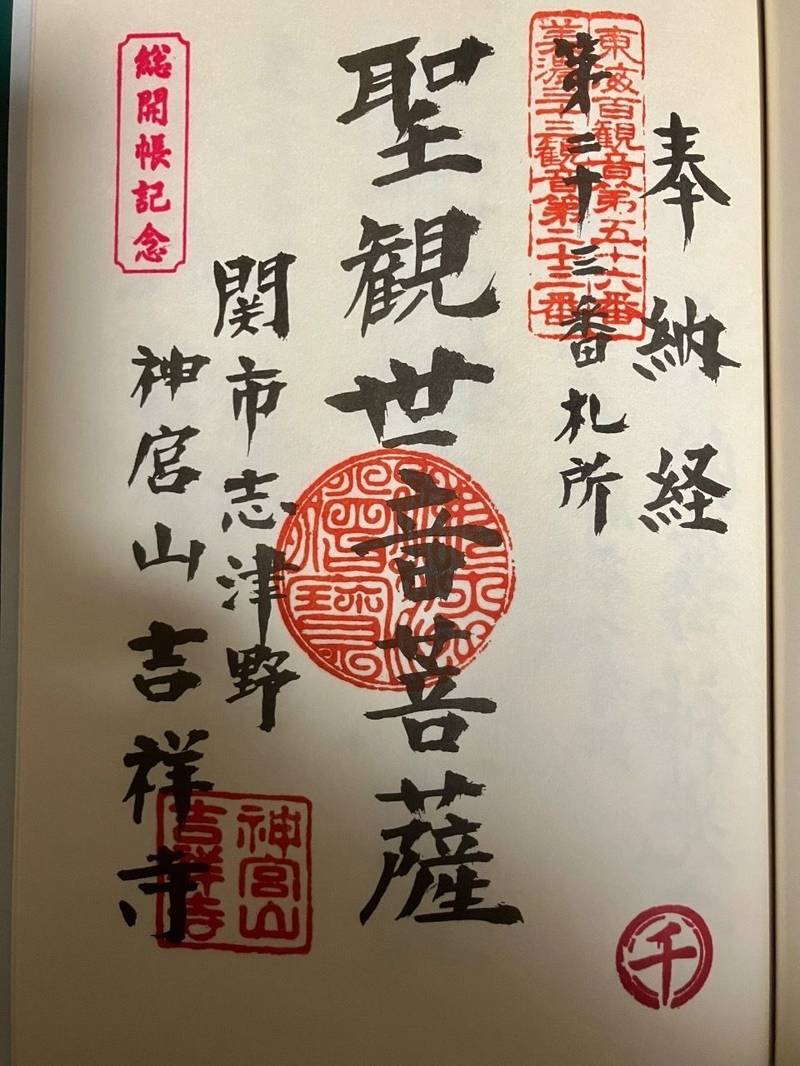 奉納経
東海百観音第五十六番
美濃三十三観音第二十三番
第二十三番札所
聖観世音菩薩
関市志津野
神宮山吉祥寺
総開帳記念
神宮山
吉祥寺
千